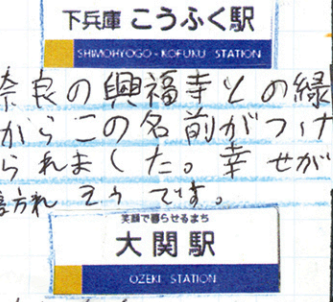 下兵庫 こうふく駅
SHIMOHYOGO-KOFUKU STATION
奈良の興福寺との縁
からこの名前がつけ
られました。幸せが
訪れそうです。
笑顔で暮らせるまち
大関駅
OZEKI STATION